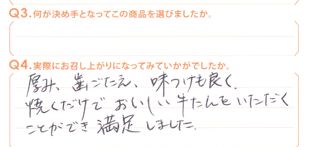 Q3.何が決め手となってこの商品を選びましたか。
Q4.実際にお召し上がりになってみていかがでしたか。
厚み、歯ごたえ、味つけも良く、
焼くだけでおいしい牛たんをいただく
ことができ満足しました。